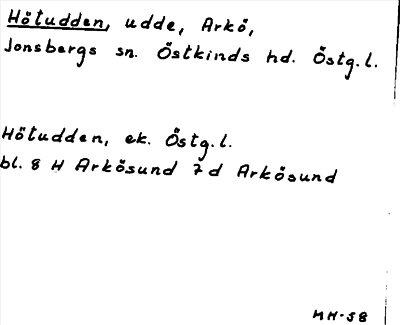 Hötudden, udde, Arkö,
Jonsbergs sn. Östkinds hd. Östg.l.
Hötudden, ek. Östg.l.
bl. 8 H Arkösund 7 d Arkösund
HH-58